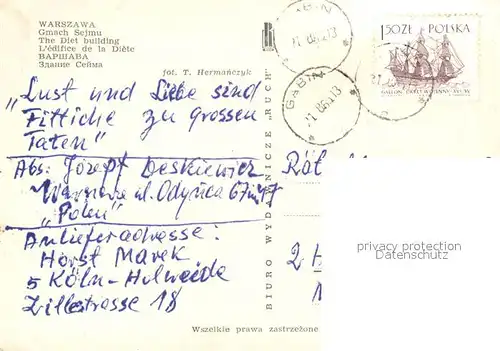 WARSZAWA
Gmach Sejmu
The Diet building
L'édifice de la Diète
ВАРШАВА
Здание Сейма
fot. T. Hermańczyk
„Lust und Liebe sind
Fittiche zu grossen
Taten"
Abs: Józef Deskiewicz
Warszawa ul. Odyńca 67 m 47
„Polen"
Anlieferadresse:
Horst Marek
5 Köln-Holweide
Zillestrasse 18
BIURO WYDAWNICZE „RUCH"
Wszelkie prawa zastrzeżone
GĄBIN
GĄBIN
1,50 ZŁ POLSKA
privacy protection
Datenschutz